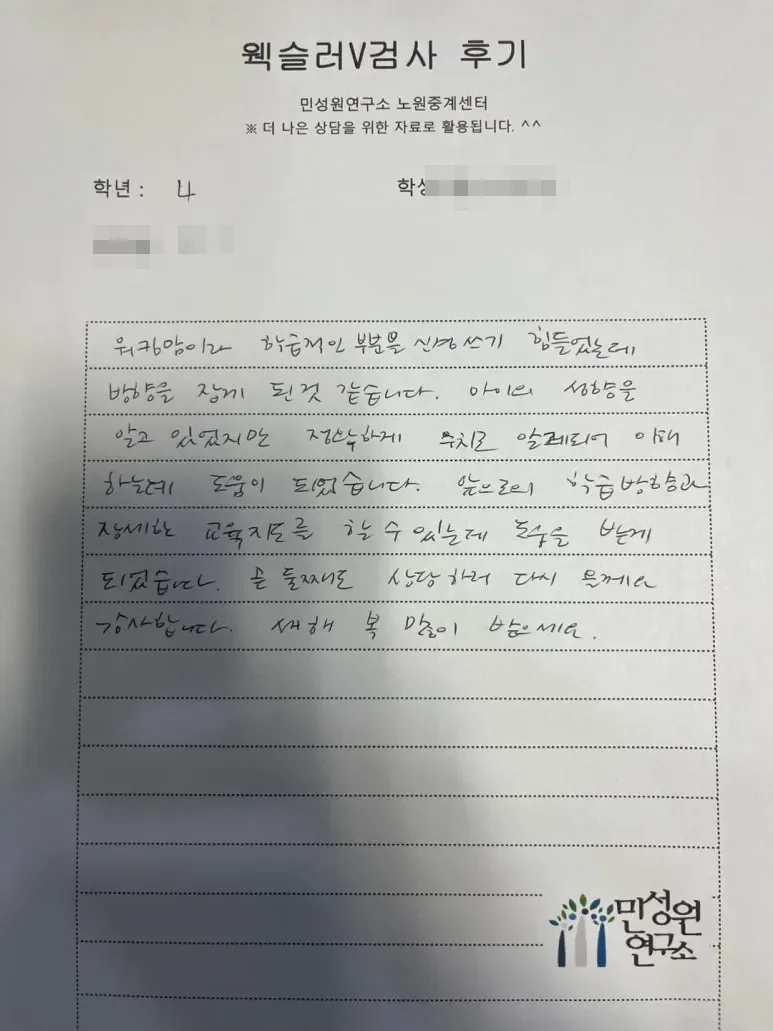 웩슬러V검사 후기
민성원연구소 노원중계센터
※ 더 나은 상담을 위한 자료로 활용됩니다. ^^
학년 : 4 학생
워킹맘이라 학습적인 부분을 신경쓰기 힘들었는데
방향을 잡게 된것 같습니다. 아이의 성향을
알고 있었지만 정확하게 수치로 알게되어 이해
하는데 도움이 되었습니다. 앞으로의 학습방향과
장세한 교육지도를 할 수 있는데 도움을 받게
되었습니다. 곧 둘째도 상담하러 다시 올께요
감사합니다. 새해 복 많이 받으세요.
민성원
연구소